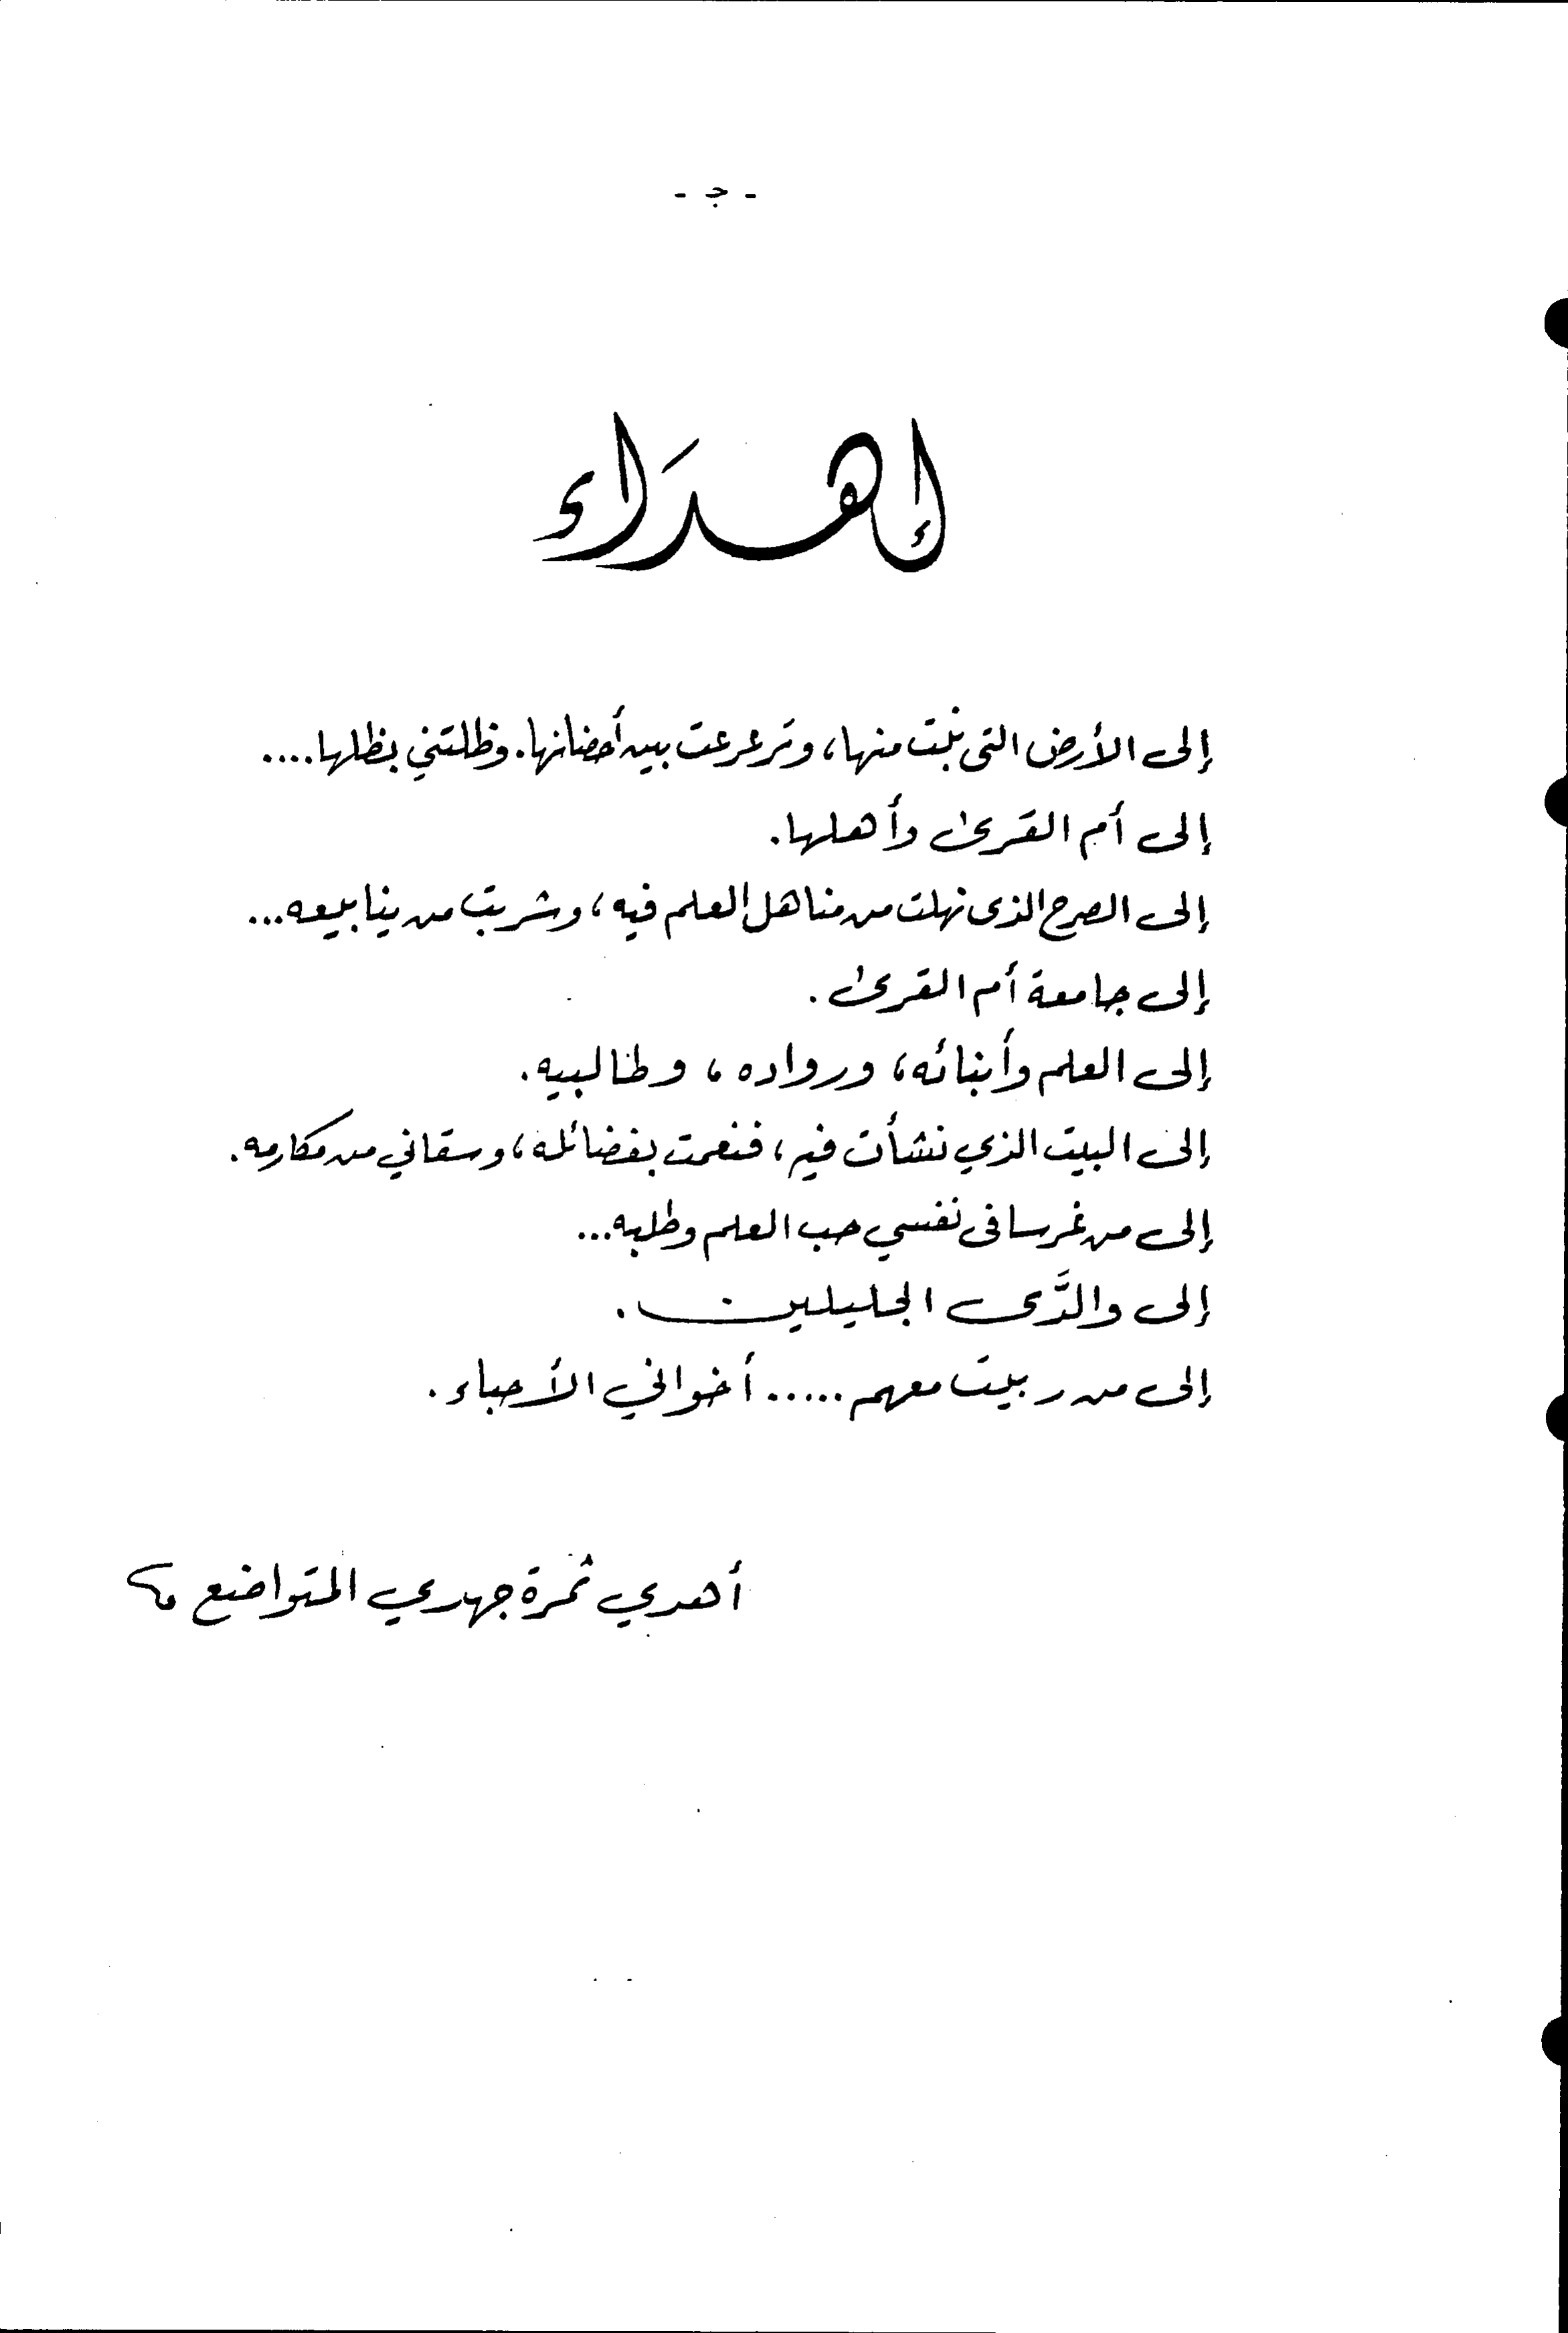 - ج -
إهدَاء
إلى الأرض التى نبت منها، وترعرعت بين أحضانها. وظلتني بظلها....
إلى أم القرى وأهلها.
إلى الصرح الذى نهلت من مناهل العلم فيه، وشربت من ينابيعه...
إلى جامعة أم القرى.
إلى العلم وأبنائه، ورواده، وطالبيه.
إلى البيت الذي نشأت فيه، فنعمت بفضائله، وسقاني من مكارمه.
إلى من غرسا فى نفسي حب العلم وطلبه...
إلى والدَّى الجليلين.
إلى من ربيت معهم ..... أخواني الأحباء.
أهدي ثمرة جهدي المتواضع ،